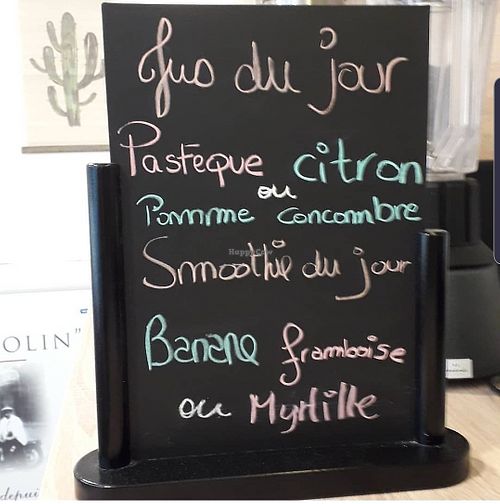 Jus du jour
Pasteque citron
ou
Pomme concombre
Smoothie du jour
Banane framboise
ou Myrtille
HappyCow
OLIN"
depui